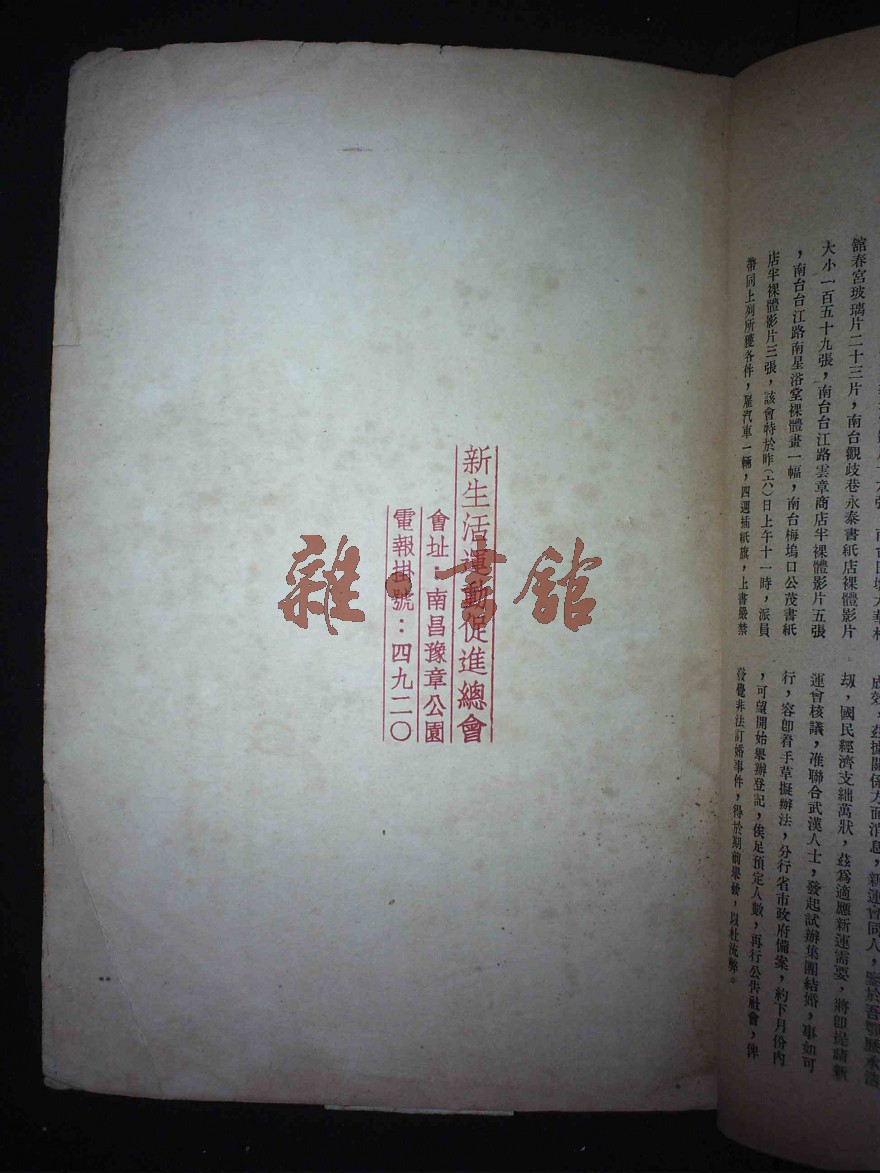 舘春宮玻璃片二十三片，南台觀歧巷永泰書紙店裸體影片
大小一百五十九張，南台台江路雲章商店半裸體影片五張
，南台台江路南星浴堂裸體畫一幅，南台梅塢口公茂書紙
店半裸體影片三張，該會特於昨（六）日上午十一時，派員
帶同上列所獲各件，雇汽車一輛，四週插紙旗，上書嚴禁
成效，茲據關係方面消息，新運會同人，鑒於吾鄂歷水浩
刼，國民經濟支絀萬狀，茲爲適應新運需要，將卽提請新
運會核議，准聯合武漢人士，發起試辦集團結婚，事如可
行，容卽着手草擬辦法，分行省市政府備案，約下月份內
，可望開始舉辦登記，俟足預定人數，再行公告社會，俾
發覺非法訂婚事件，得於期前舉發，以杜流弊。
新生活運動促進總會
會址：南昌豫章公園
電報掛號：四九二〇
雜·書館